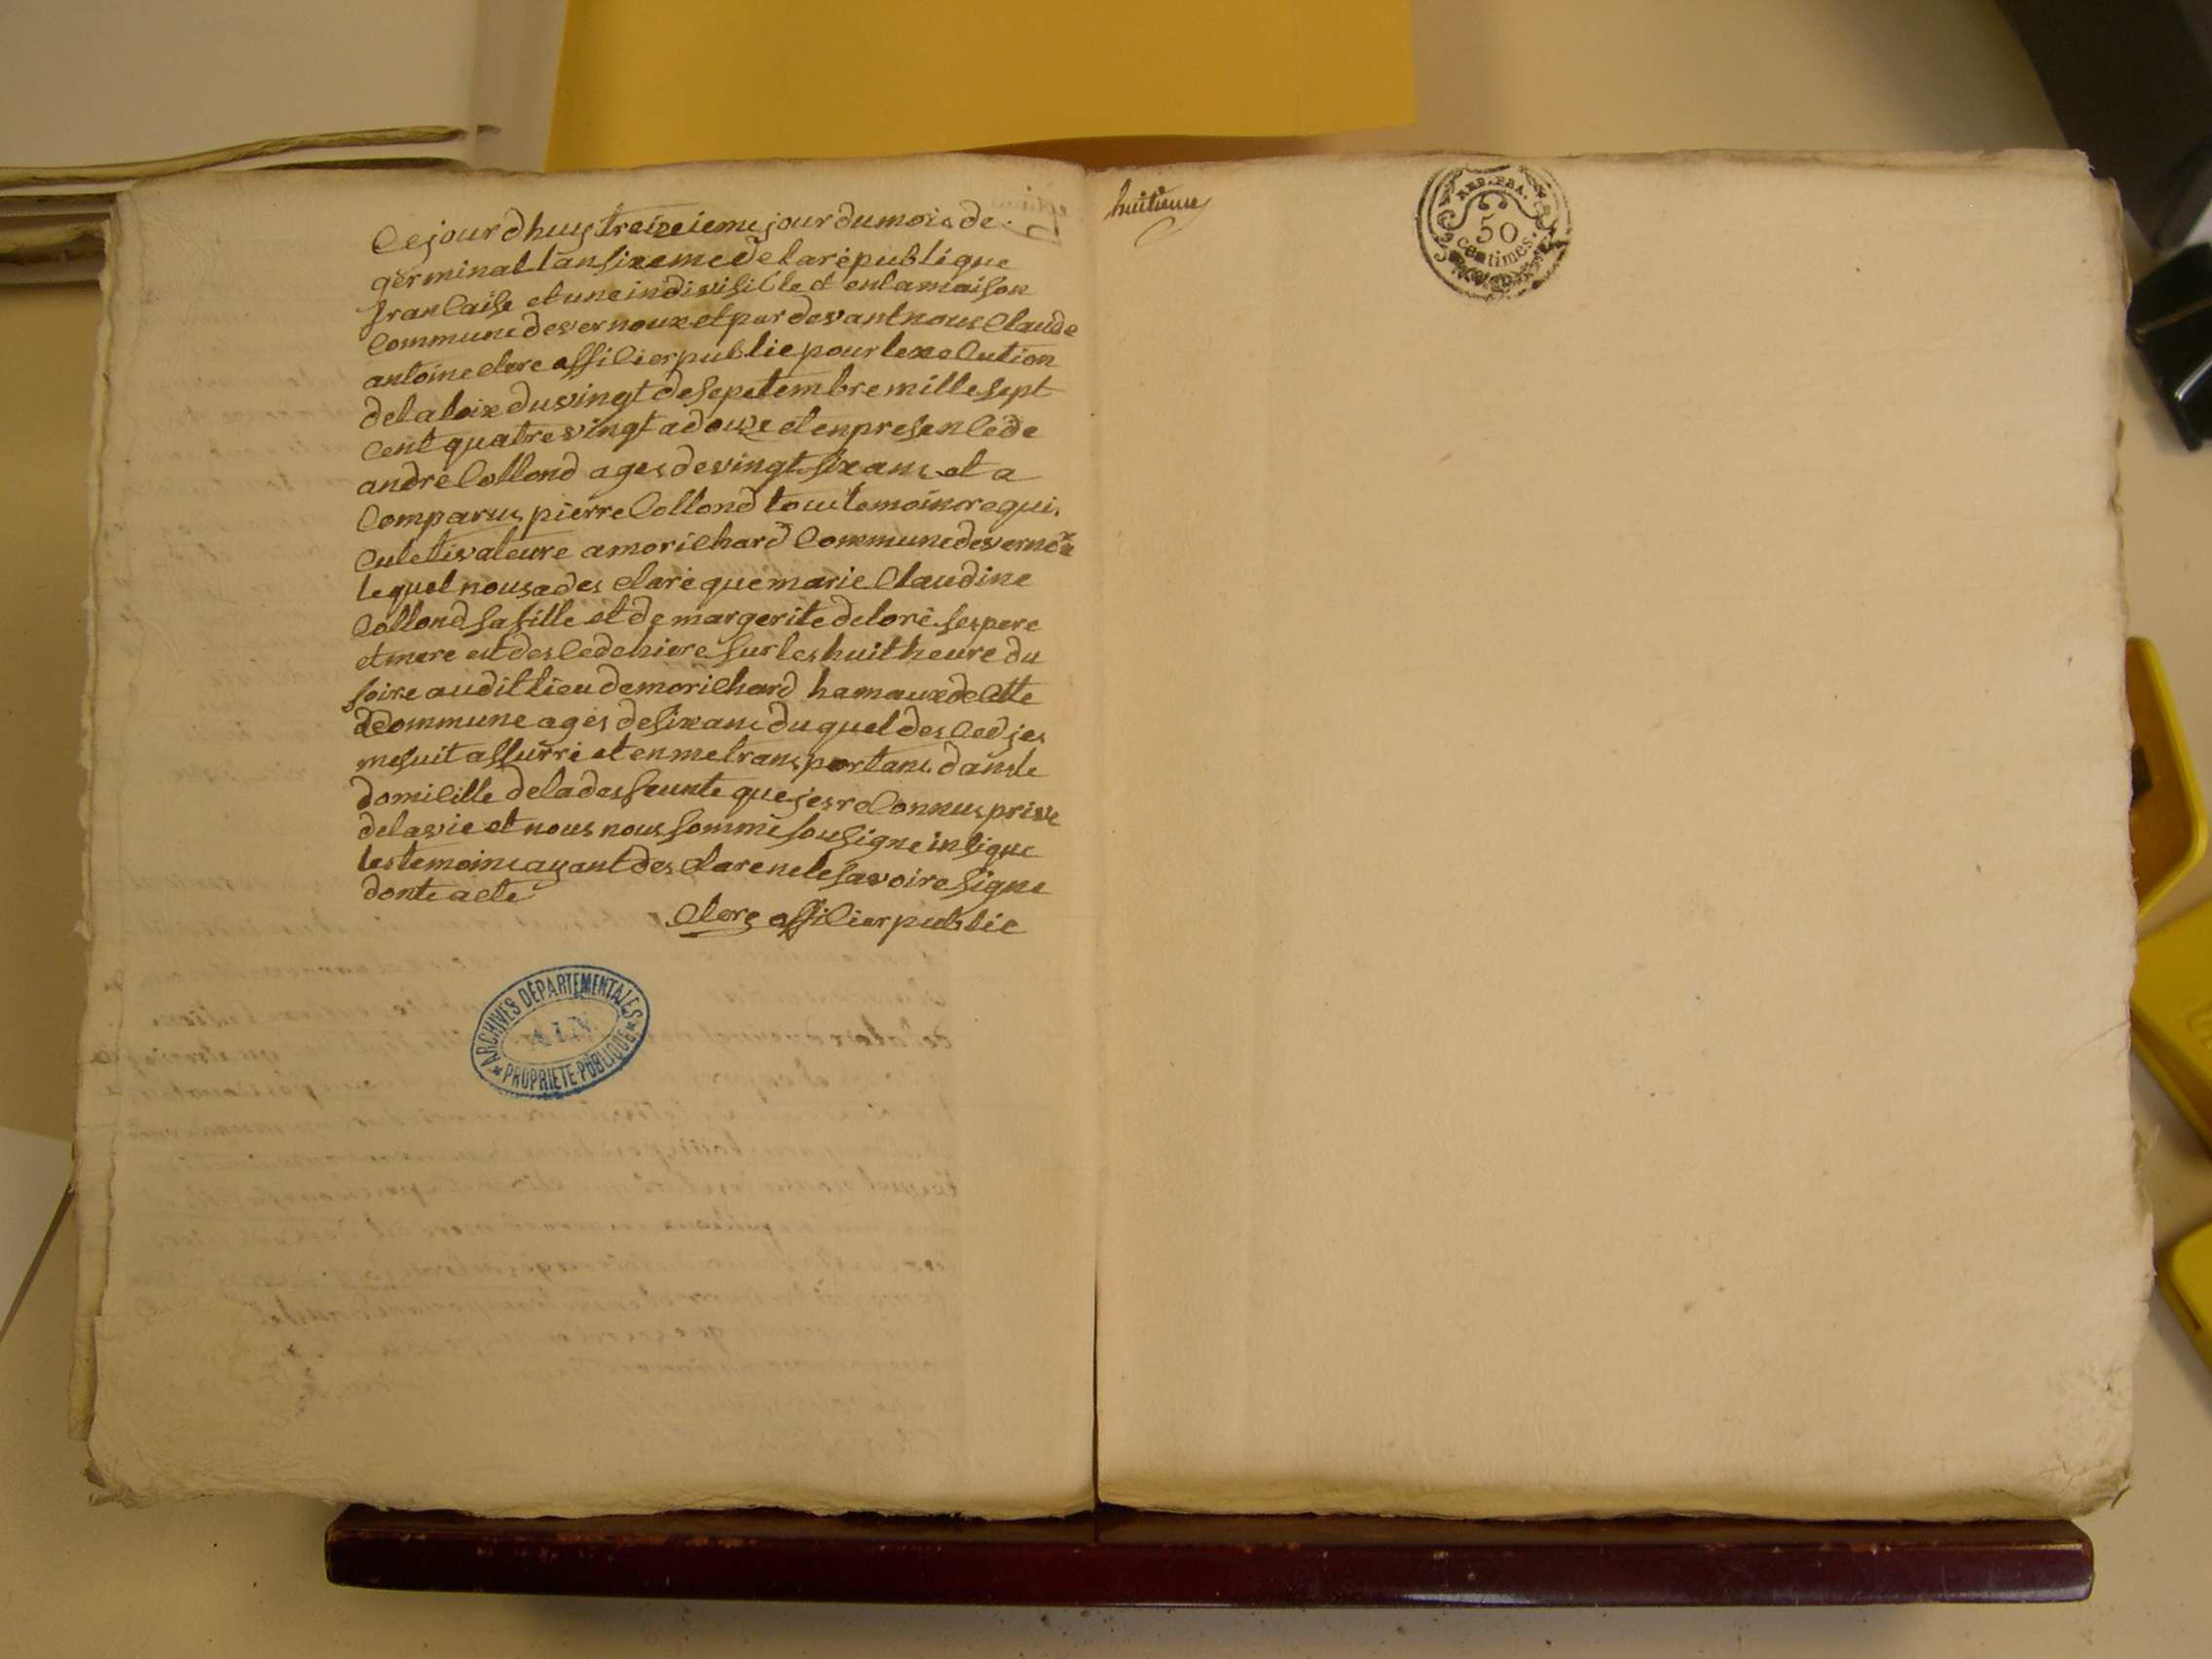 Cejourdhuy treizieme jour du mois de
germinal lan sixeme de la république
francaise et une indivisible et en la maison
Commune de vernoux et par devant nous Claude
antoine clerc officier public pour lexecution
de la loix du vingt de sepetembre mille sept
Cent quatre vingt adouze et en presence de
andré Collond ages de vingt six ans et a
Comparus pierre Collond tous temoins requis
Culetivateure a morichard Commune de vernox
lequel nous a des claré que marie Claudine
Collond sa fille et de margerite deloré ses pere
et mere est des cede hiere sur les huit heure du
soire audit lieu de morichard hamaux de cette
de commune agés de six ans du quel des ced jes
me suit assurré et en me trans portans dans le
domicille de la des feunte que jes reconnus prive
de la vie et nous nous somme sousigne insique
les temoins ayant des clare ne le savoire signe
donte acte
Clerc officier public
ARCHIVES DÉPARTEMENTALES
AIN
PROPRIÉTÉ PUBLIQUE
huitieme
REP. FRA.
50
centimes.